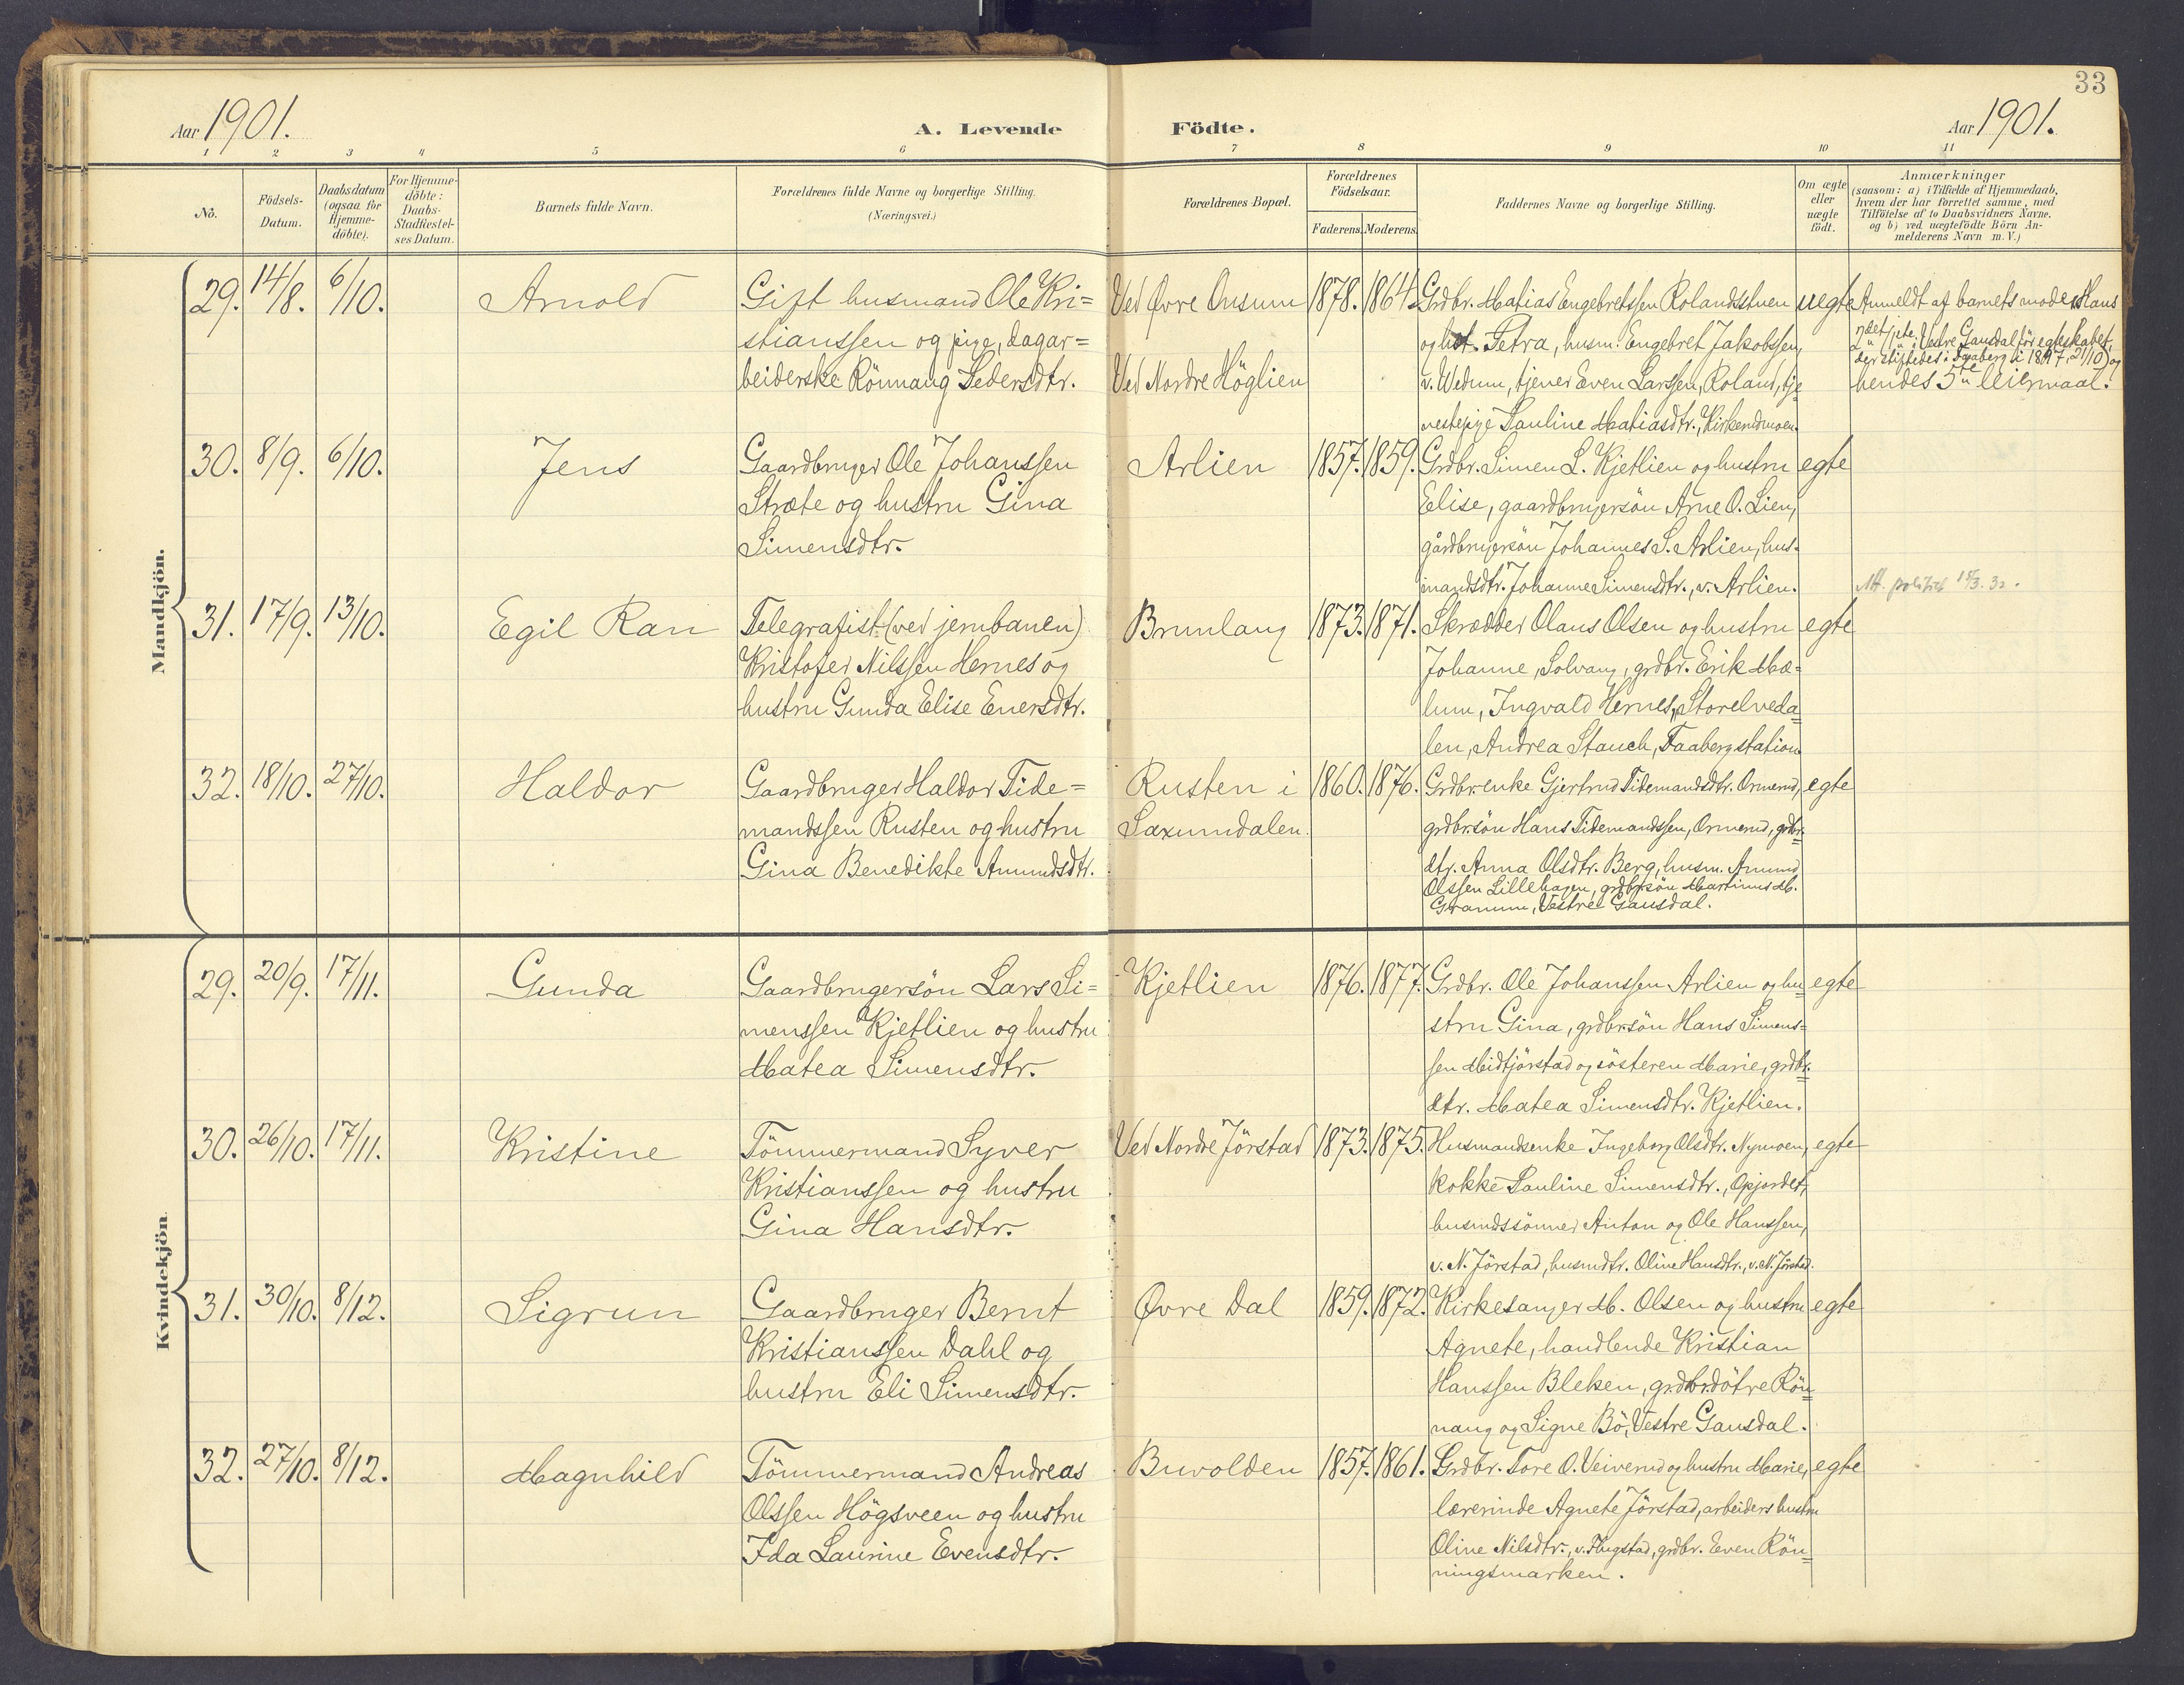 33
Aar 1901.
A. Levende Födte.
Aar 1901.
1 2 3 4 5 6 7 8 9 10 11
No.
Födsels-
Datum.
Daabsdatum
(ogsaa for
Hjemme-
döbte).
For Hjemme-
döbte:
Daabs-
Stadfæstel-
ses Datum.
Barnets fulde Navn.
Forældrenes fulde Navne og borgerlige Stilling.
(Næringsvei.)
Forældrenes Bopæl.
Forældrenes
Födselsaar.
Faderens. Moderens.
Faddernes Navne og borgerlige Stilling.
Om ægte
eller
uægte
födt.
Anmærkninger
(saasom: a) i Tilfælde af Hjemmedaab,
hvem der har forrettet samme, med
Tilföielse af to Daabsvidners Navne.
og b) ved uægtefödte Börn An-
melderens Navn m. V.)
Mandkjön.
29. 14/8. 6/10.
Arnold
Gift husmand Ole Kri=
stianssen og pige, dagar=
beiderske Rönnaug Pedersdtr.
Ved Øvre Onsum
Ved Nordre Höglien
1878. 1864.
Grdbr. Matias Engebretssen Rolandsstuen
og hst. Petra, husm. Engebret Jakobssen,
v. Wedum, tjener Even Larssen, Roland, tje
nestepige Pauline Matiasdtr., Kirkerudmoen.
uegte
Anmeldt af barnets moder. Hans
Vestre Gausdal för egteskabet,
der stiftedes i Faaberg i 1897, 21/10) og
hendes 5te leiermaal.
30. 8/9. 6/10.
Jens
Gaardbruger Ole Johanssen
Stræte og hustru Gina
Simensdtr.
Arlien
1857. 1859.
Grdbr. Simen L. Kjetlien og hustru
Elise, gaardbrugersön Arne O. Lien,
gårdbrugersön Johannes S. Arlien, hus-
mandsdtr. Johanne Simensdtr., v. Arlien.
egte
31. 17/9. 13/10.
Egil Ran
Telegrafist (ved jernbanen)
Kristofer Nilssen Hernes og
hustru Gunda Elise Enersdtr.
Brunlaug
1873. 1871.
Skrædder Olaus Olsen og hustru
Johanne, Solvang, grdbr. Erik Mæ=
lum, Ingvald Hernes, Storelveda=
len, Andrea Stauch, Faaberg station
egte
Att. politiet 15/3. 32.
32. 18/10. 27/10.
Haldor
Gaardbruger Haldor Tide=
mandssen Rusten og hustru
Gina Benedikte Amundsdtr.
Rusten i
Saxumdalen.
1860. 1876.
Grdbr.enke Gjertrud Tidemandsdtr. Ormerud,
grdbr.sön Hans Tidemandssen, Ormerud, grdbr.
dtr. Anna Olsdtr. Berg, husm. Amund
Olssen Lillehagen, grdbr.sön Martinus M.
Gramm, Vestre Gausdal.
egte
Kvindekjön.
29. 20/9. 17/11.
Gunda
Gaardbrugersön Lars Si=
menssen Kjetlien og hustru
Matea Simensdtr.
Kjetlien
1876. 1877.
Grdbr. Ole Johanssen Arlien og hu
stru Gina, grdbr.sön Hans Simens=
sen Midtjörstad og sösteren Marie, grdbr.
dtr. Matea Simensdtr. Kjetlien.
egte
30. 26/10. 17/11.
Kristine
Tömmermand Syver
Kristianssen og hustru
Gina Hansdtr.
Ved Nordre Jörstad
1873. 1875.
Husmandsenke Ingeborg Olsdtr. Nymoen,
kokke Pauline Simensdtr., Opjordet,
husmdssönner Anton og Ole Hanssen,
v. N. Jörstad, husmdtr. Oline Hansdtr., v. N. Jörstad.
egte
31. 30/10. 8/12.
Sigrun
Gaardbruger Bernt
Kristianssen Dahl og
hustru Eli Simensdtr.
Øvre Dal
1859. 1872.
Kirkesanger M. Olsen og hustru
Agnete, handlende Kristian
Hanssen Bleken, grdbr.dötre Rön=
naug og Signe Bö, Vestre Gausdal.
egte
32. 27/10. 8/12.
Magnhild
Tömmermand Andreas
Olssen Högsveen og hustru
Ida Laurine Evensdtr.
Buvolden
1857. 1861.
Grdbr. Tore O. Veiverud og hustru Marie,
lærerinde Agnete Jörstad, arbeiders hustru
Oline Nilsdtr., v. Flugstad, grdbr. Even Rön=
ningsmarken.
egte